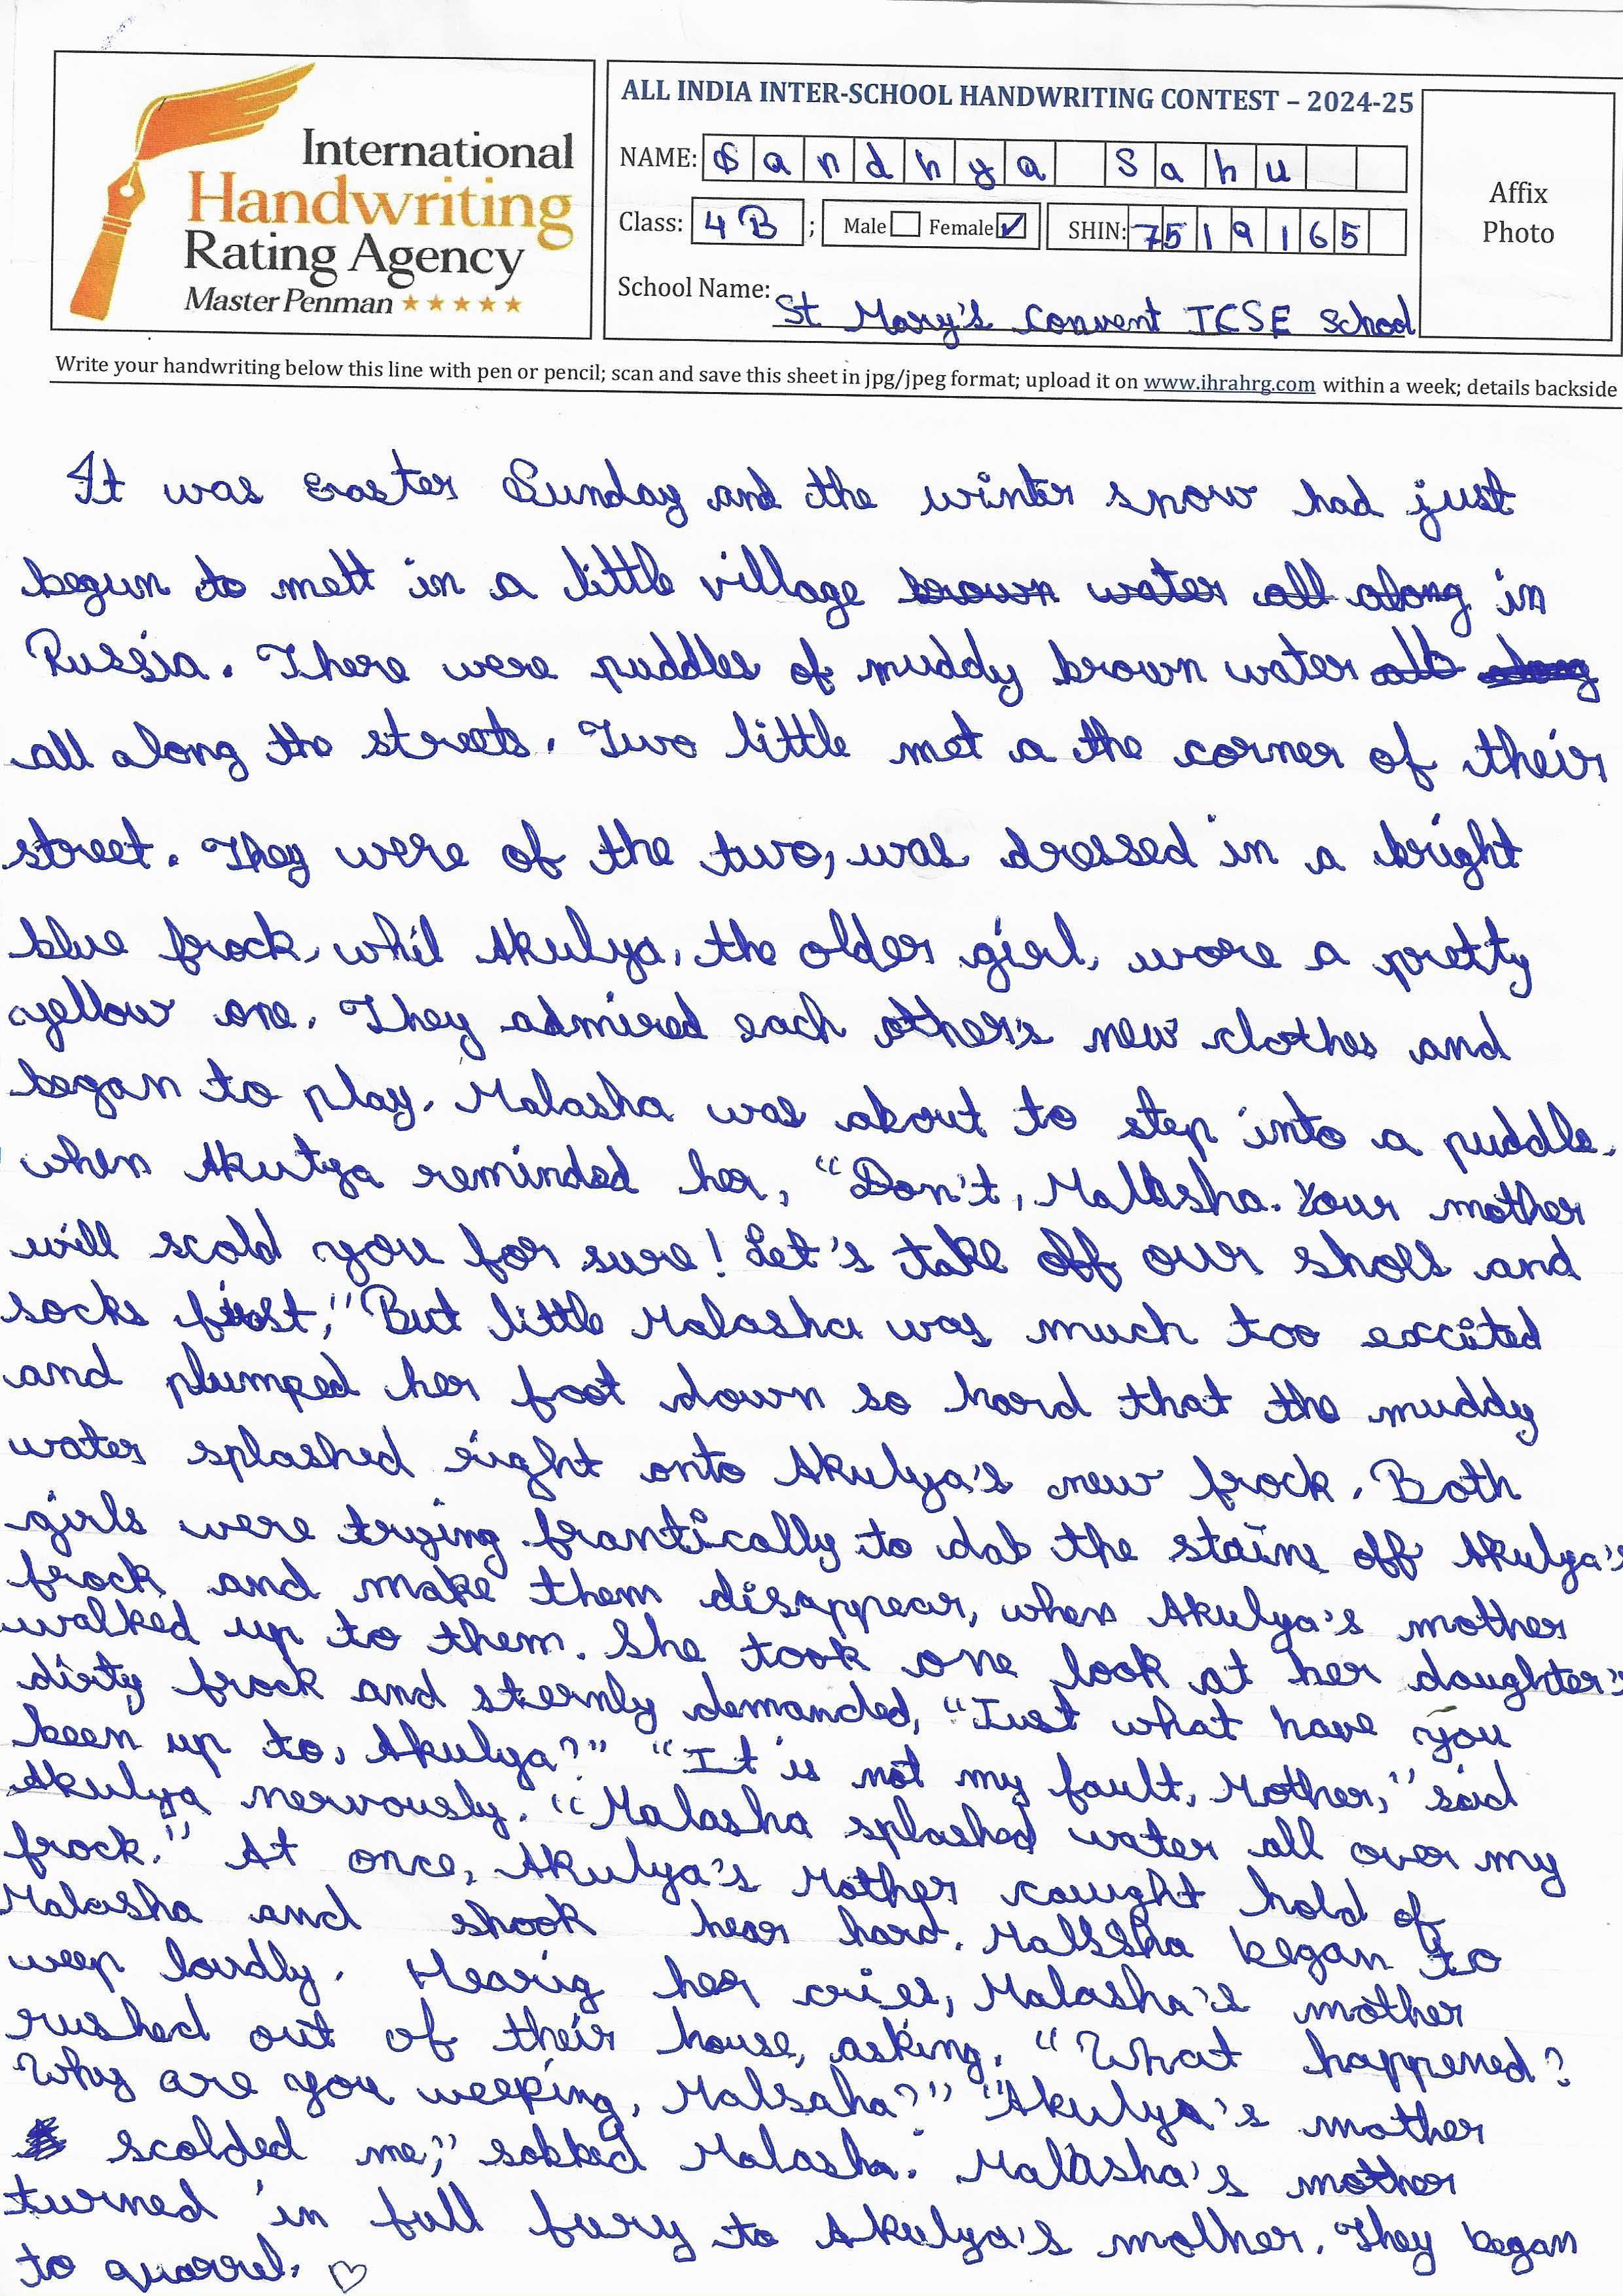 International
Handwriting
Rating Agency
Master Penman
ALL INDIA INTER-SCHOOL HANDWRITING CONTEST – 2024-25
NAME: Sandhya Sahu
Class: 4 B ; Male Female ✓ SHIN: 7519165
School Name: St Mary's Convent ICSE School
Affix
Photo
Write your handwriting below this line with pen or pencil; scan and save this sheet in jpg/jpeg format; upload it on www.ihrahrg.com within a week; details backside
It was Easter Sunday and the winter snow had just
begun to melt in a little village brown water all along in
Russia. There were puddles of muddy brown water all along
all along the streets. Two little met a the corner of their
street. They were of the two, was dressed in a bright
blue frock, whil Akulya, the older girl, wore a pretty
yellow one. They admired each other's new clothes and
began to play. Malasha was about to step into a puddle,
when Akulya reminded her, "Don't, Malasha. Your mother
will scold you for sure! Let's take off our shoes and
socks first," But little Malasha was much too excited
and plumped her foot down so hard that the muddy
water splashed right onto Akulya's new frock. Both
girls were trying frantically to dab the stains off Akulya's
frock and make them disappear, when Akulya's mother
walked up to them. She took one look at her daughter's
dirty frock and sternly demanded, "Just what have you
been up to, Akulya?" "It is not my fault, Mother," said
Akulya nervously. "Malasha splashed water all over my
frock." At once, Akulya's Mother caught hold of
Malasha and shook hear hard. Malasha began to
weep loudly. Hearig her cries, Malasha's mother
rushed out of their house, asking, "What happened?
Why are you weeping, Malsaha?" "Akulya's mother
scolded me," sobbed Malasha. Malasha's mother
turned in full fury to Akulya's mother. They began
to quarrel. ♡